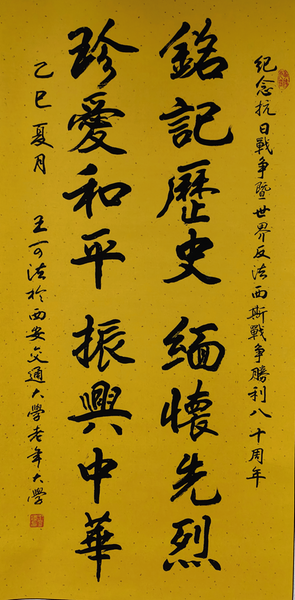 紀念抗日戰争暨世界反法西斯戰争勝利八十周年
銘記歷史 緬懷先烈
珍愛和平 振興中華
乙巳夏月 王可法於西安交通大學老年大學